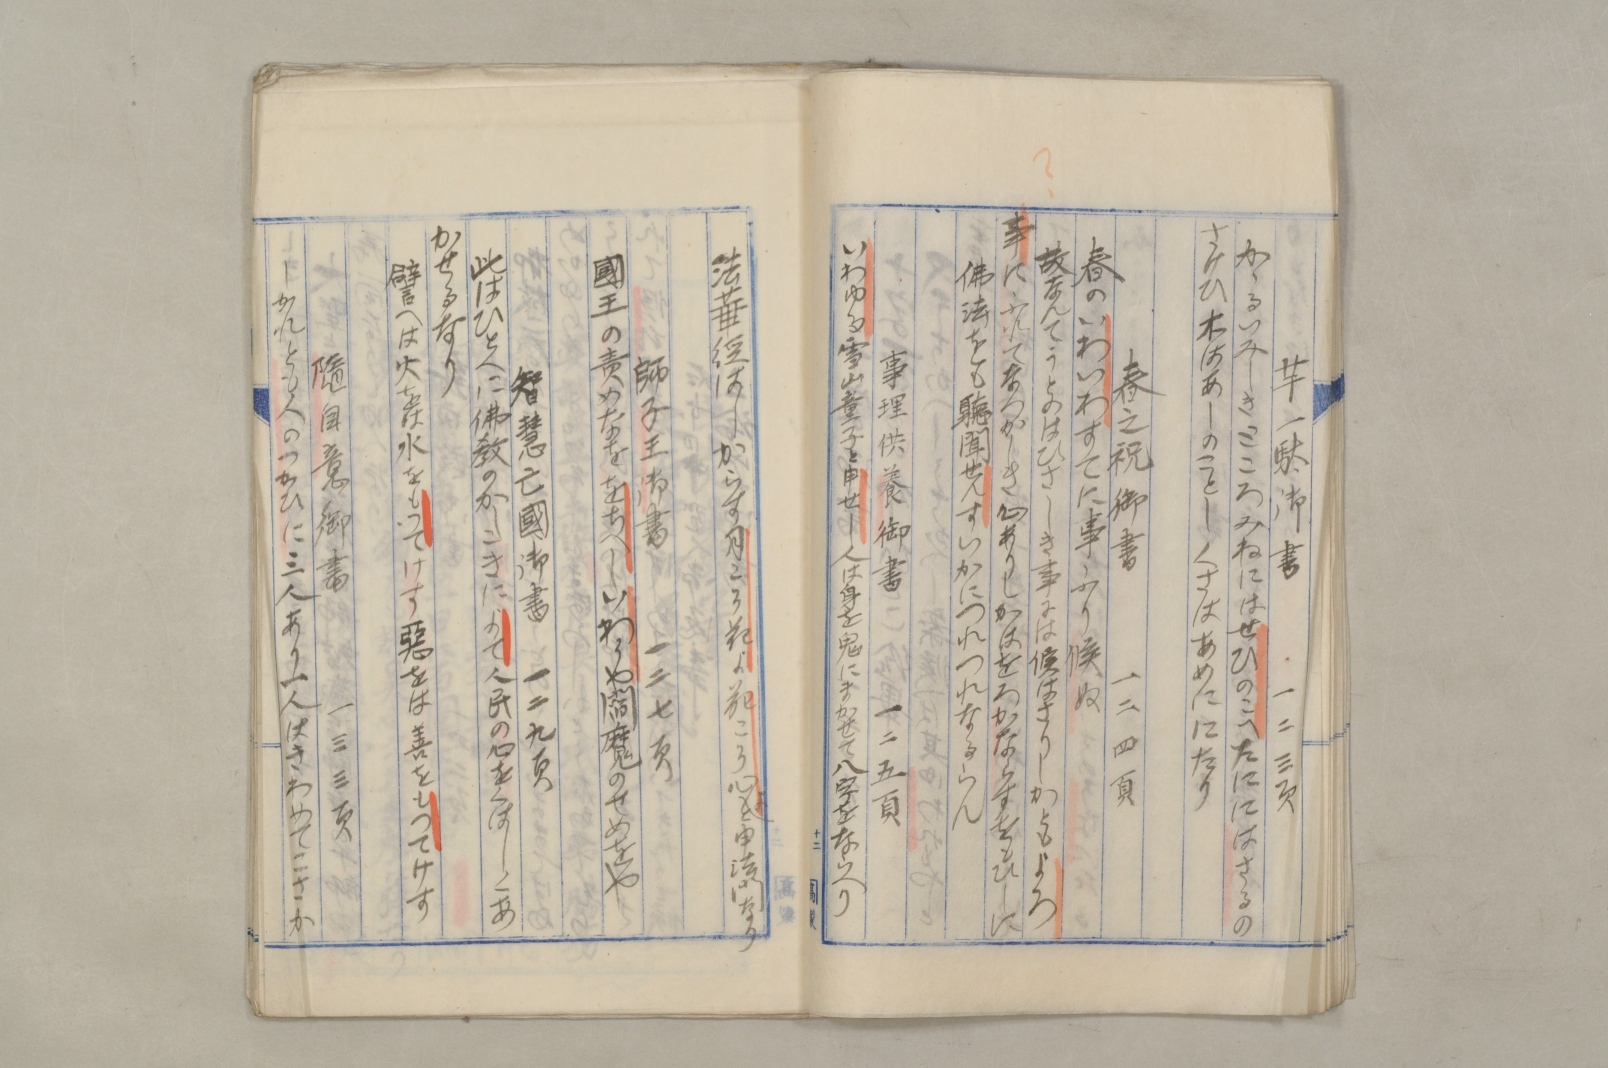 芋一駄御書　一二三頁
かゝるいみしきところみねにはせひのこへたににはさるの
さけひ木はあしのことしくさはあめににたり
春之祝御書　一二四頁
春のいわいわすてに事ふり候ぬ
故なんてうとのはひさしき事には候はさりしかともよろつ
事にふれてなつかしき心ありしかはをろかならすをもひしに
佛法をも聽聞せんすいかにつれつれなるらん
事理供養御書　一二五頁
いわゆる雪山童子と申せし人は身を鬼にまかせて八字をならへり
法華經はしからす月こそ花よ花こそ心と申法門なり
師子王御書　一二七頁
國王の責めなををそろししいわうや閻魔のせめをや
智慧亡國御書　一二九頁
此はひとへに佛教のかしこきによて人民の心をくはしくあ
かせるなり
譬へは火をは水をもつてけす惡をは善をもつてけす
隨自意御書　一三三頁
しかれとも人のつかひに三人あり一人はきわめてこさか